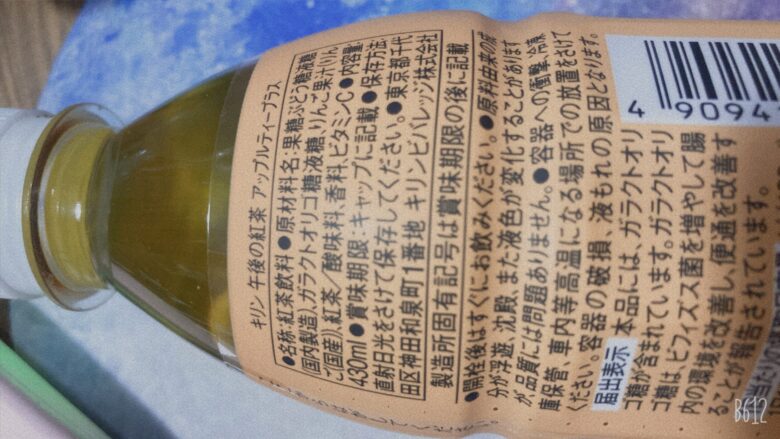 キリン 午後の紅茶 アップルティープラス
●名称:紅茶飲料●原材料名:果糖ぶどう糖液糖
国内製造)、ガラクトオリゴ糖液糖、りんご果汁(りん
ご(国産))、紅茶/酸味料、香料、ビタミンC●内容量:
430ml●賞味期限:キャップに記載●保存方法:
直射日光をさけて保存してください。●東京都千代
田区神田和泉町1番地 キリンビバレッジ株式会社
製造所固有記号は賞味期限の後に記載
●開栓後はすぐにお飲みください。●原料由来の成
分が浮遊、沈殿、また液色が変化することがあります
が品質には問題ありません。●容器への衝撃、冷凍
庫保管、車内等高温になる場所での放置をさけて
ください。容器の破損、液もれの原因となります。
届出表示 本品には、ガラクトオリ
ゴ糖が含まれています。ガラクトオリ
ゴ糖は、ビフィズス菌を増やして腸
内の環境を改善し、便通を改善す
ることが報告されています。
4 9094
B612